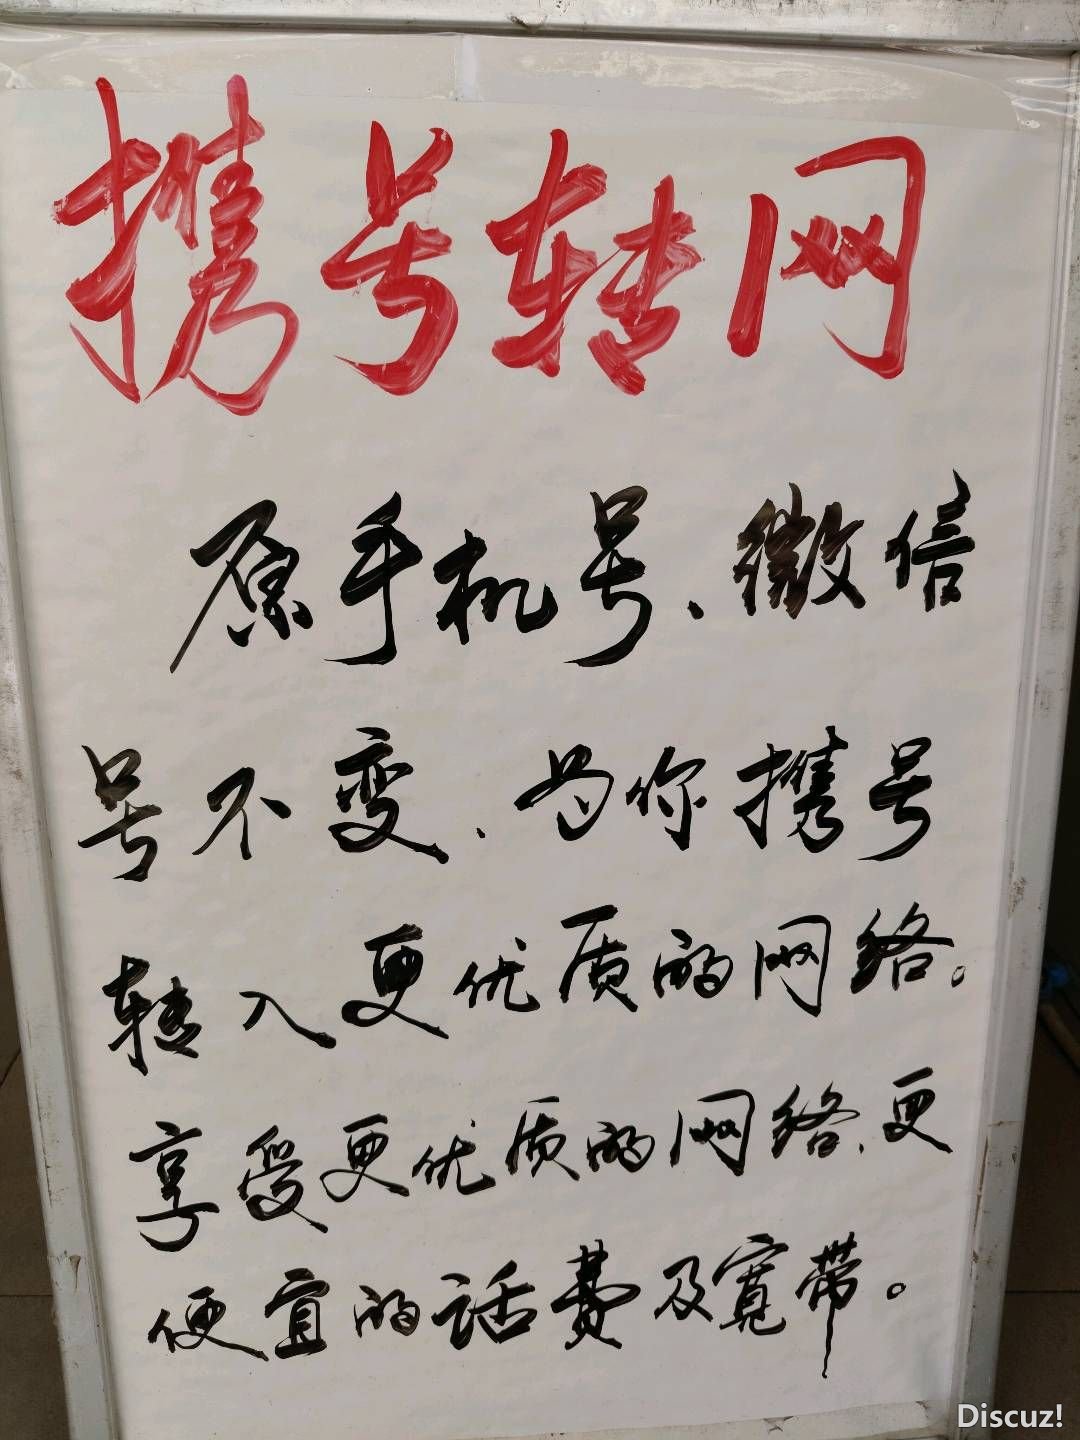 携号转网
原手机号、微信
号不变、为你携号
转入更优质的网络。
享受更优质的网络、更
便宜的话费及宽带。
Discuz!